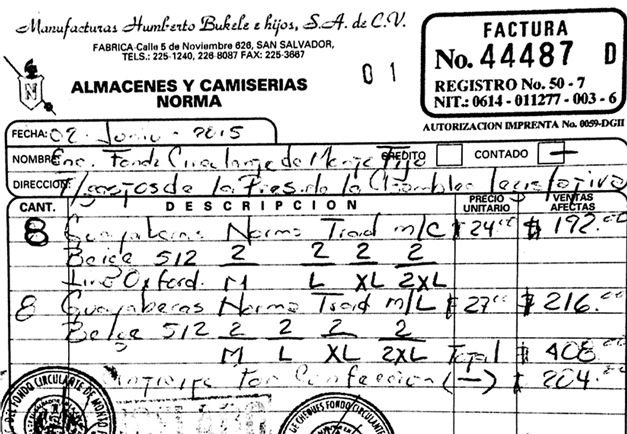 Manufacturas Humberto Bukele e hijos, S.A. de C.V.
FABRICA-Calle 5 de Noviembre 626, SAN SALVADOR,
TELS.: 225-1240, 226-8087 FAX: 225-3667
ALMACENES Y CAMISERIAS
NORMA
01
FACTURA
No. 44487 D
REGISTRO No. 50 - 7
NIT.: 0614 - 011277 - 003 - 6
AUTORIZACION IMPRENTA No. 0059-DGII
FECHA: 02 - Junio - 2015
NOMBRE Enc. Fondo Circulante de Monto Fijo CREDITO CONTADO
DIRECCION: de la Pres. de la Asamblea Legislativa
CANT. DESCRIPCION PRECIO UNITARIO VENTAS AFECTAS
8 Guayaberas Norma Trad m/c $24.00 $192.00
Beige 512 2 2 2 2
Lino Oxford. M L XL 2XL
8 Guayaberas Norma Trad m/L $27.00 $216.00
Beige 512 2 2 2 2
M L XL 2XL Total $ 408.00
Por Confección (-) $ 204.00
FONDO CIRCULANTE DE MONTO
DE CHEQUES FONDO CIRCULANTE